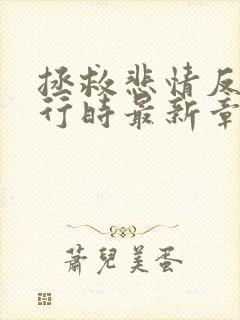 拯救悲情反
行時最新章
蕭兒美蛋